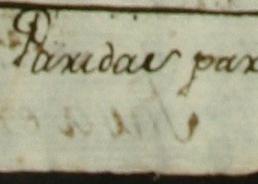 Paridas par